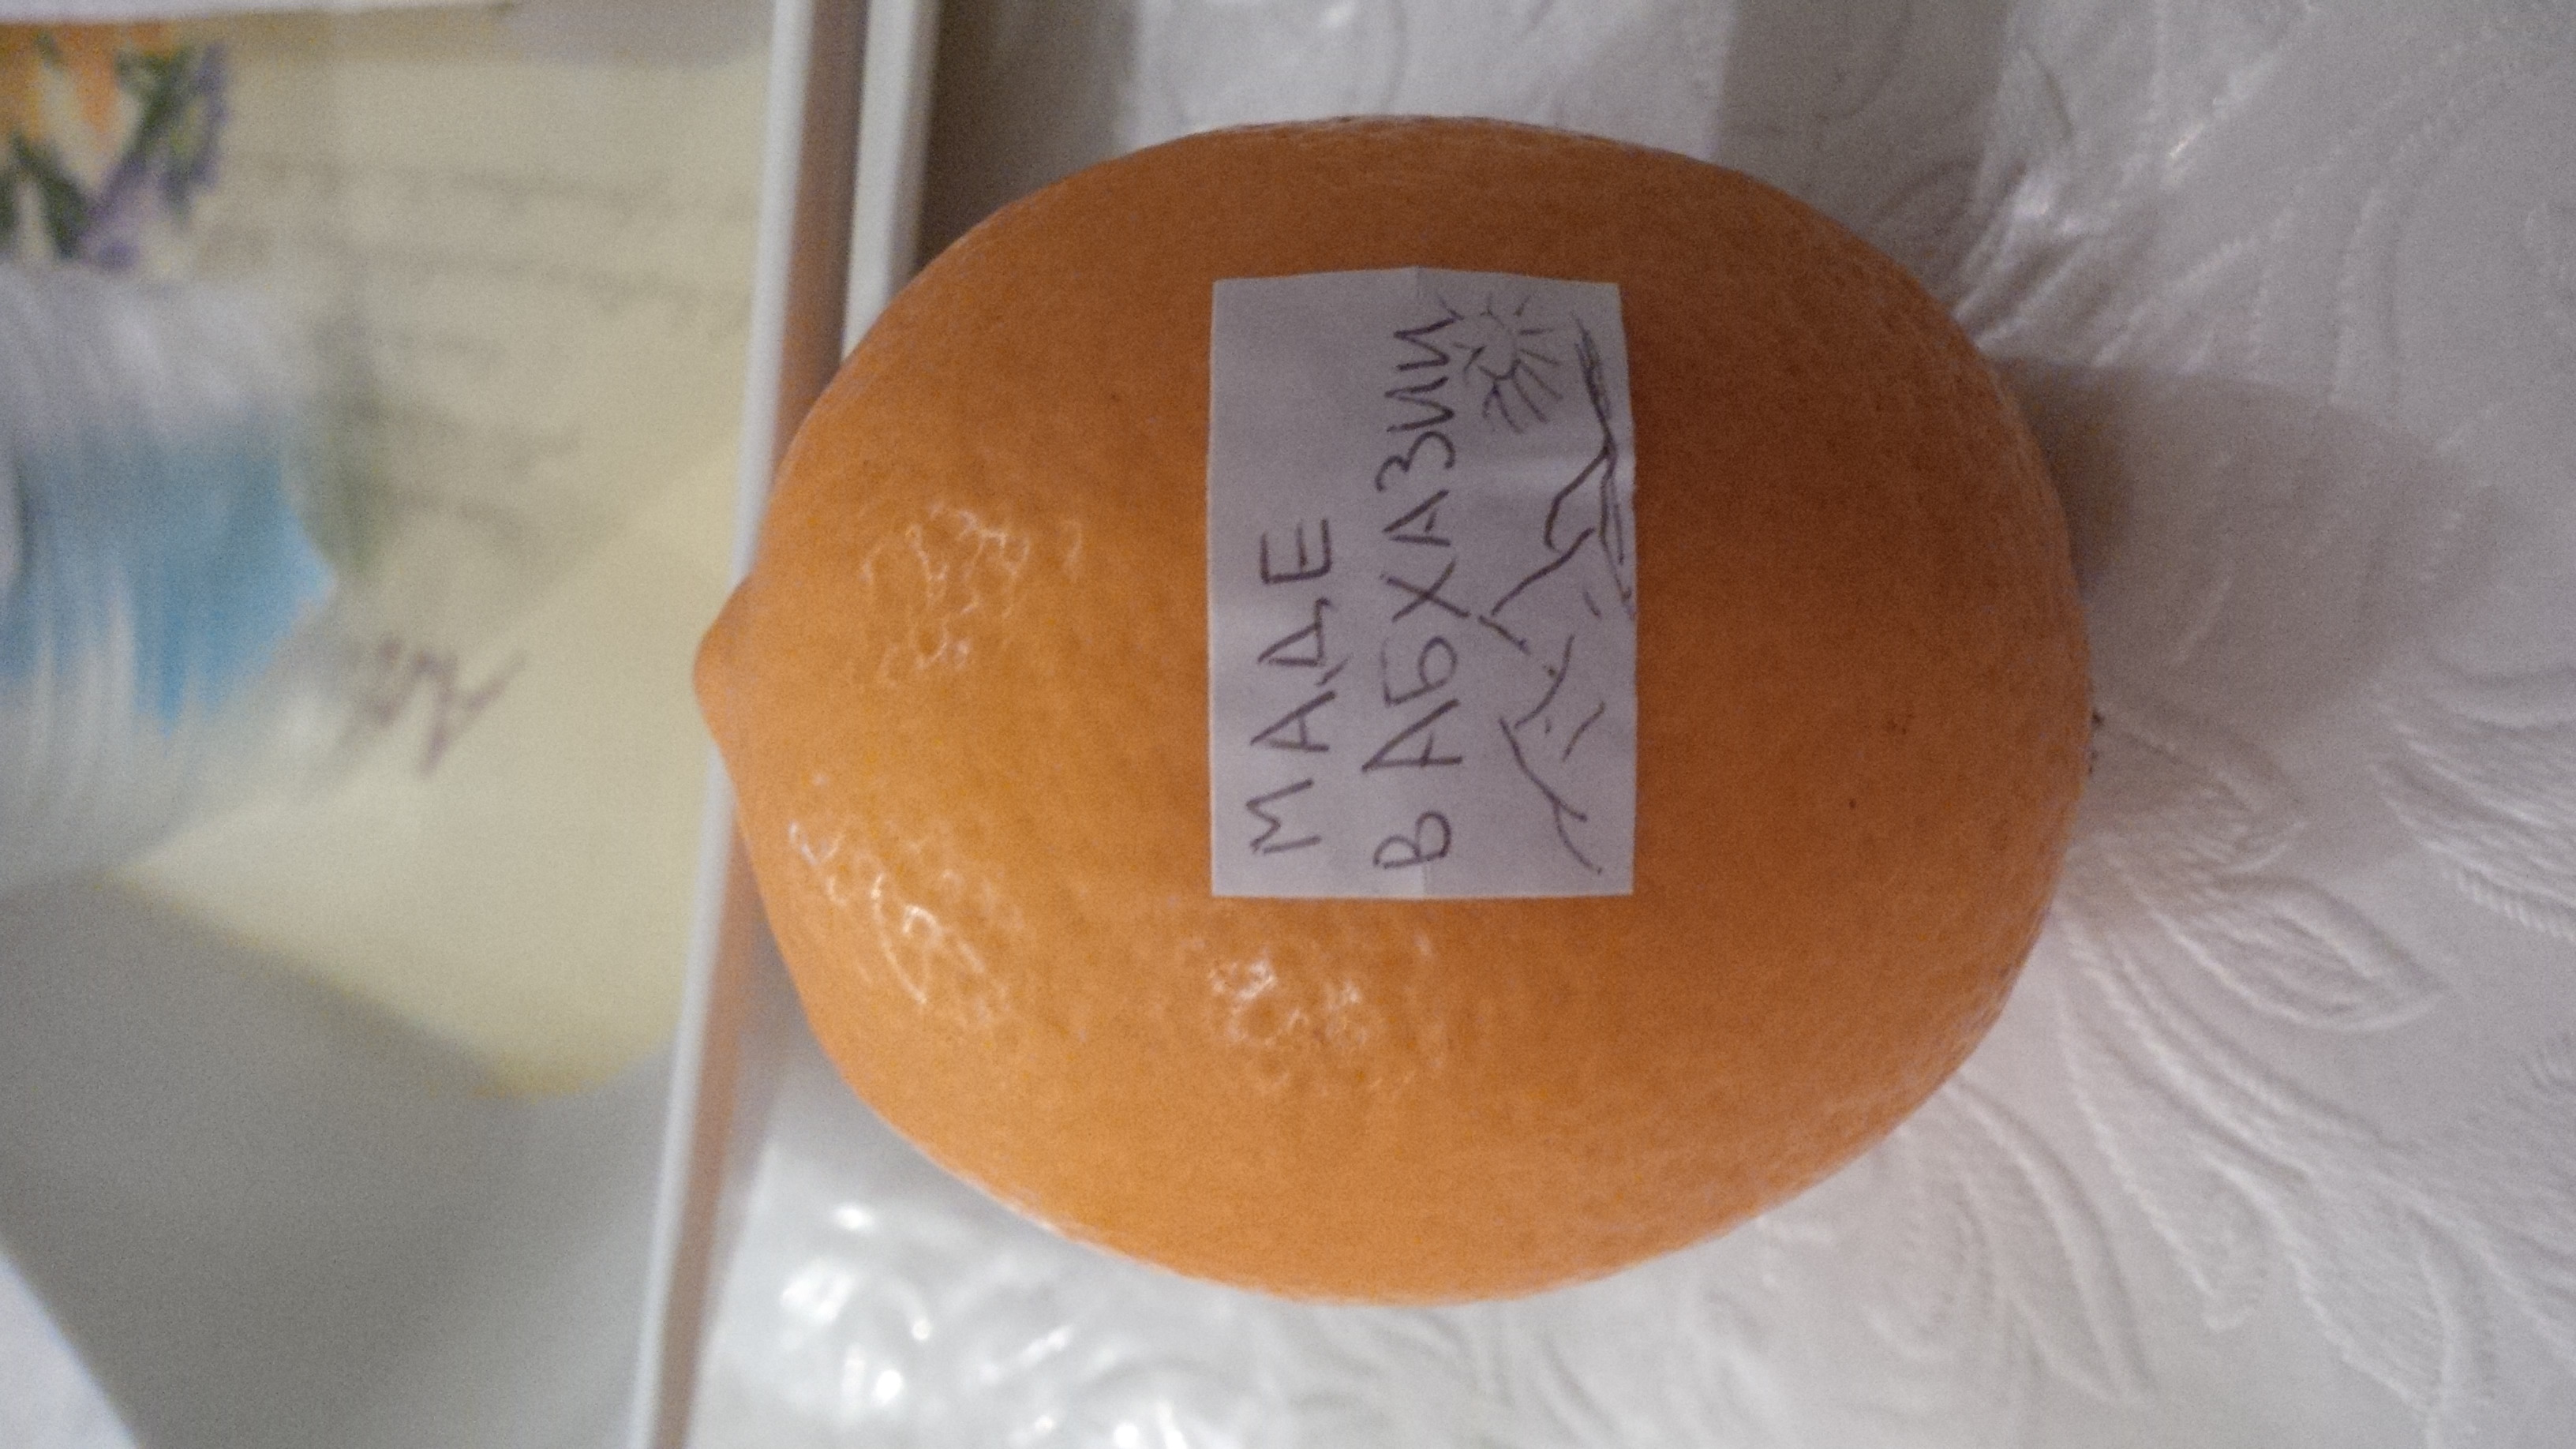 МАДЕ
В АБХАЗИИ